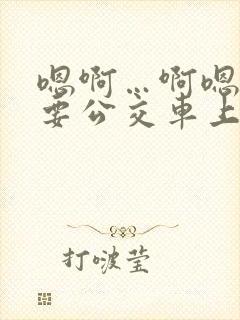 嗯啊…啊嗯
要公交车上
打啵莹